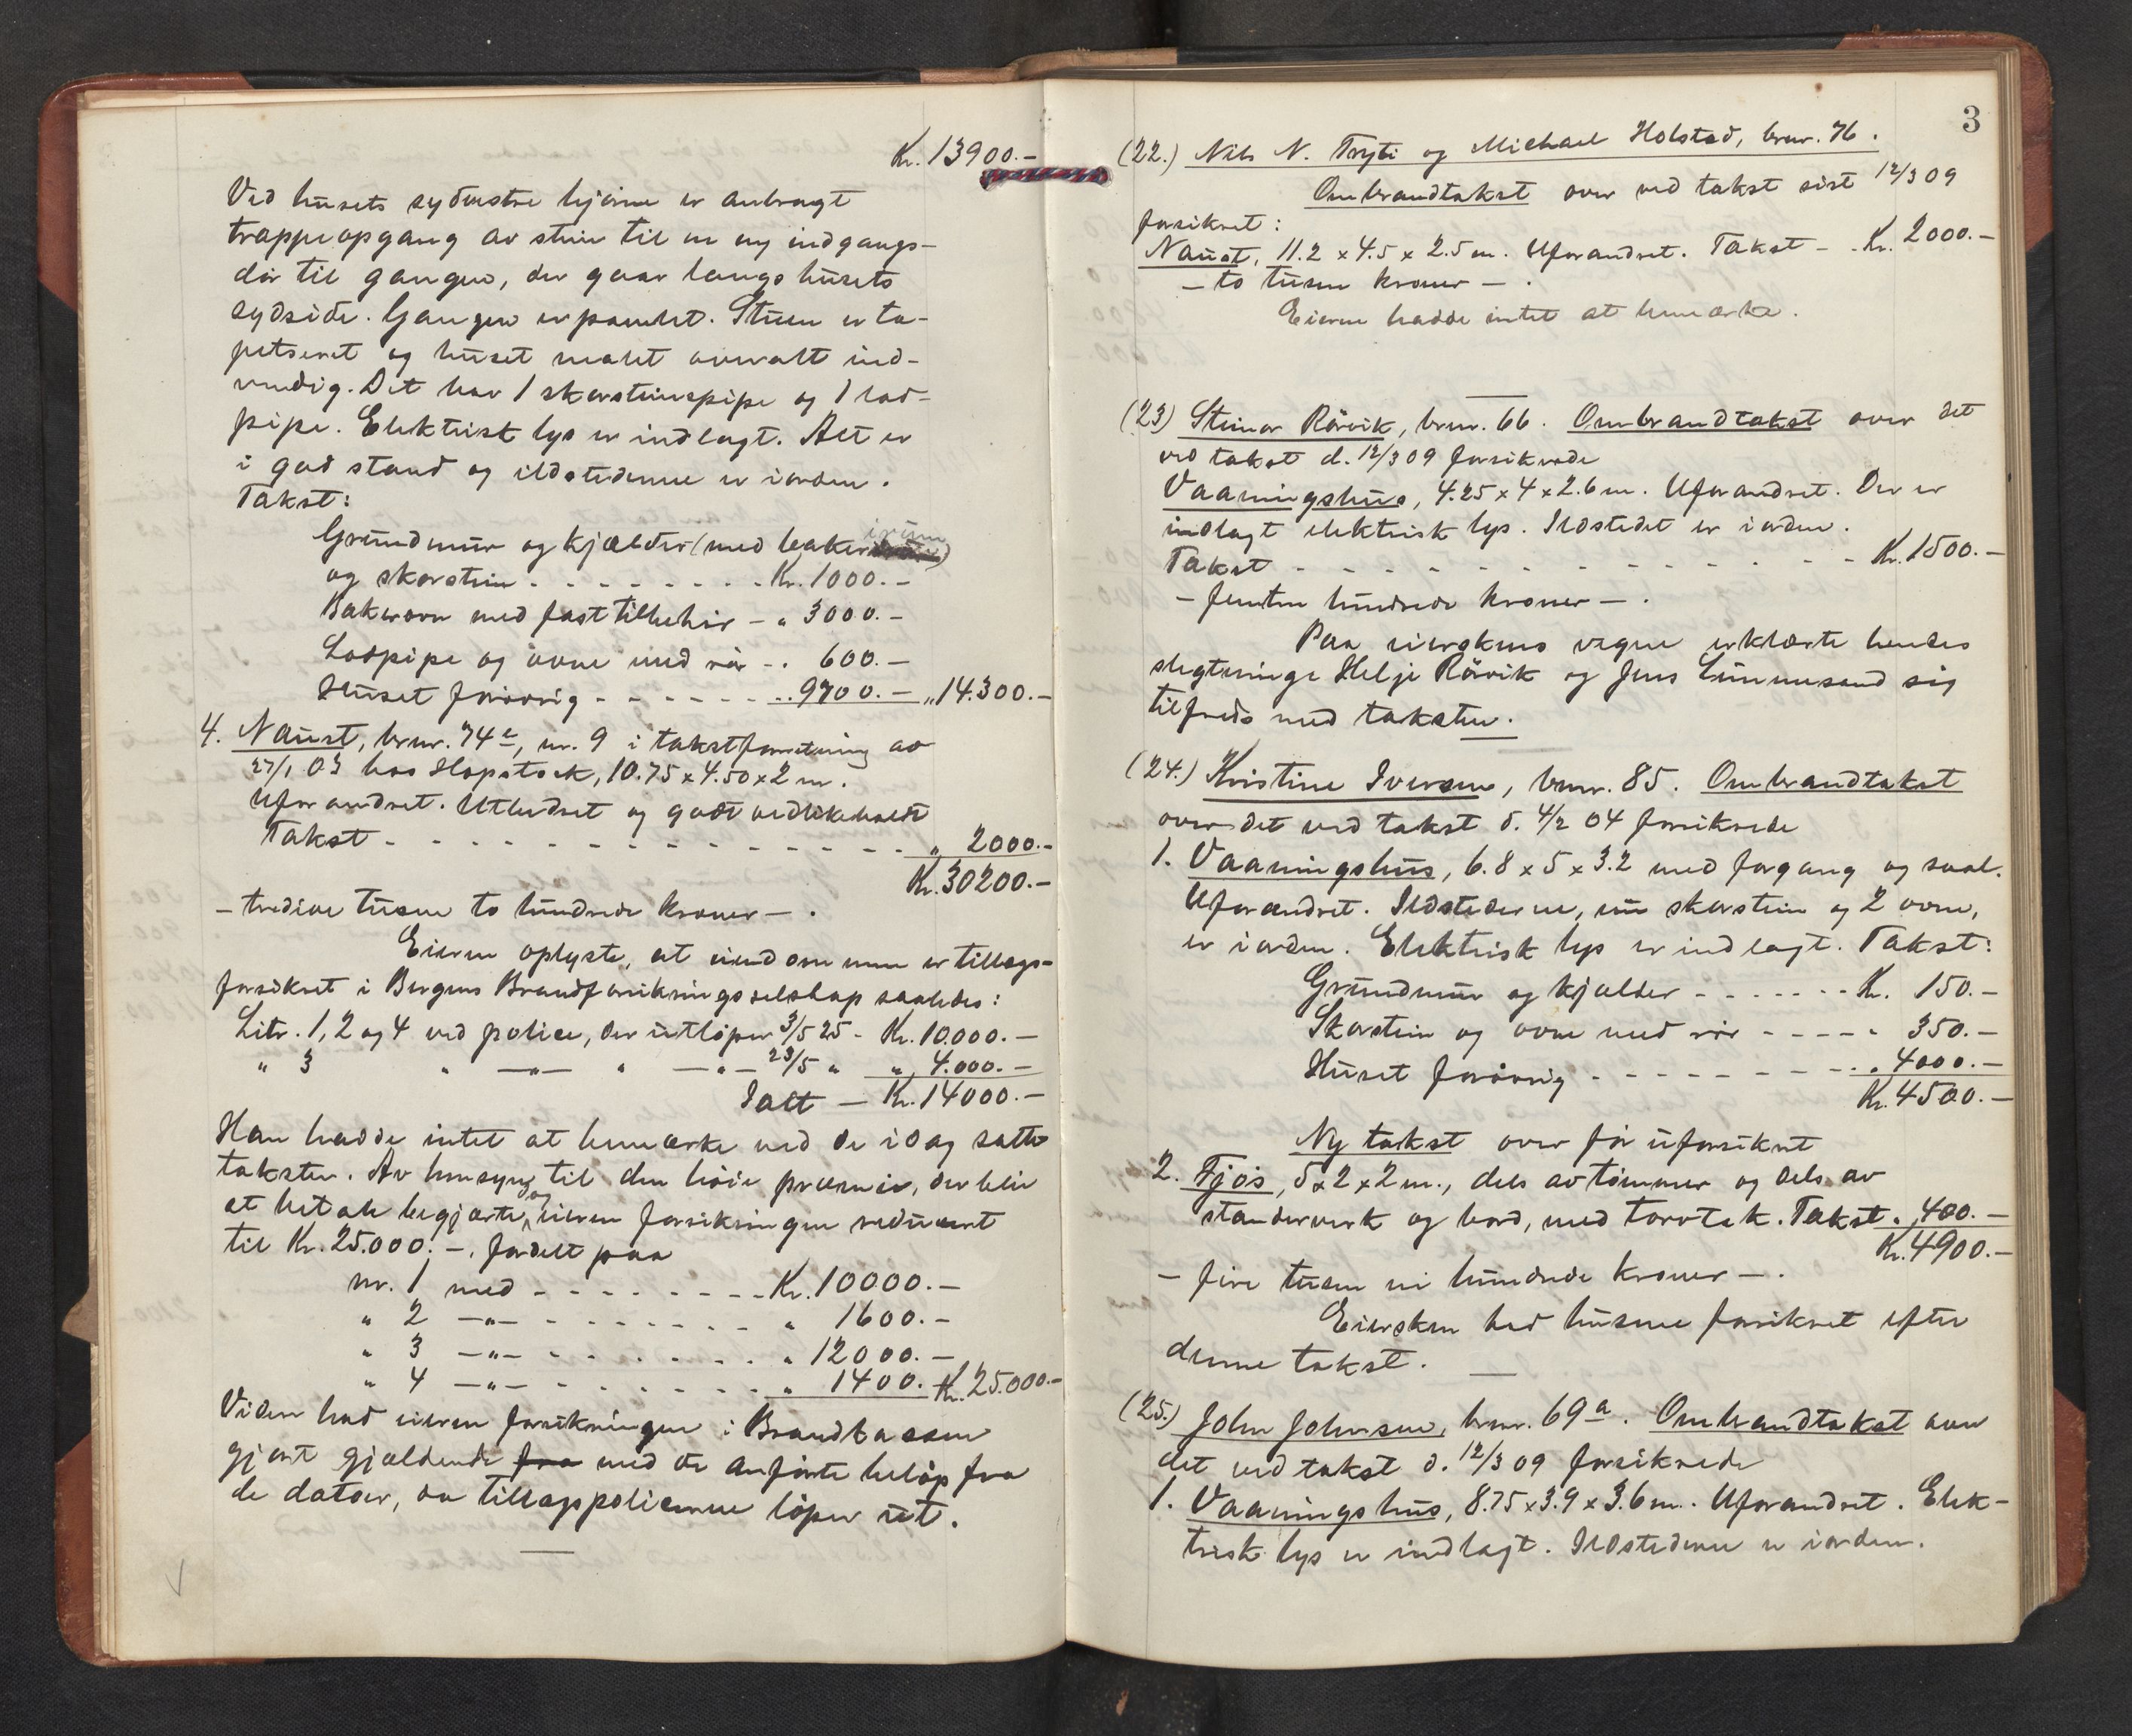 Kr. 13900.-
Ved husets sydvestre hjörne er anbragt
trappeopgang av sten til en ny indgangs-
dör til gangen, der gaar langs husets
sydside. Gangen er panelet. Stuen er ta-
petseret og huset malet overalt ind-
vendig. Det har 1 skorstenspipe og 1 lod-
pipe. Elektrisk lys er indlagt. Alt er
i god stand og ildstederne er iorden.
Takst:
Grundmur og kjælder (med bakerirum)
og skorsten - - - - - - - - Kr. 1000.-
Bakerovn med fast tilbehör - „ 3000.-
Lodpipe og ovne med rör - „ 600.-
Huset forövrig - - - - - - - „ 9700.- „ 14.300.-
4. Naust, brnr. 74 e, nr. 9 i takstforretning av
27/1 03 hos Hopstock, 10.75 x 4.50 x 2 m.
Uforandret. Utbedret og godt vedlikeholdt
Takst - - - - - - - - - - - - - - - „ 2000.-
Kr. 30200.-
- tredive tusen to hundrede kroner -.
Eieren oplyste, at eiendommen er tillægs-
forsikret i Bergens Brandforsikringsselskap saaledes:
Litr. 1, 2 og 4 ved police, der utlöper 3/5 25 - Kr. 10.000.-
„ 3 „ -„- „ -„- 23/5 „ „ 4.000.-
Ialt - Kr. 14000.-
Han hadde intet at bemærke ved de idag satte
takster. Av hensyn til den höie præmie, der blir
at betale begjærte og eieren forsikringen reduceret
til Kr. 25.000.-, fordelt paa
nr. 1 med - - - - - - - - Kr. 10000.-
„ 2 -„- - - - - - - - „ 1600.-
„ 3 -„- - - - - - - - „ 12000.-
„ 4 -„- - - - - - - - „ 1400. Kr. 25.000.-
Videre bad eieren forsikringen i Brandkassen
gjort gjældende fra med de anförte belöp fra
de datoer, da tillægspolicerne löper ut.
3
(22.) Nils N. Tryti og Michael Holstad, brnr. 76.
Ombrandtakst over ved takst sist 12/3 09
forsikret:
Naust, 11.2 x 4.5 x 2.5 m. Uforandret. Takst - - Kr. 2000.-
- to tusen kroner -.
Eierne hadde intet at bemærke.
(23) Steinar Rörvik, brnr. 66. Ombrandtakst over det
ved takst d. 12/3 09 forsikrede
Vaaningshus, 4.25 x 4 x 2.6 m. Uforandret. Der er
indlagt elektrisk lys. Ildstedet er iorden.
Takst - - - - - - - - - - - - - Kr. 1500.-
- femten hundrede kroner -.
Paa eierskens vegne erklærte hendes
slegtninge Helje Rörvik og Jens Simmesend sig
tilfreds med taksten.
(24.) Kristine Iversen, brnr. 85. Ombrandtakst
over det ved takst d. 4/2 04 forsikrede
1. Vaaningshus, 6.8 x 5 x 3.2 med forgang og sval.
Uforandret. Ildstederne, en skorsten og 2 ovne,
er iorden. Elektrisk lys er indlagt. Takst:
Grundmur og kjælder - - - - - - Kr. 150.-
Skorsten og ovne med rör - - - - „ 350.-
Huset forövrig - - - - - - - - - „ 4000.-
Kr. 4500.-
Ny takst over för uforsikret
2. Fjös, 5 x 2 x 2 m., dels av tömmer og dels av
standerverk og bord, med torvtak. Takst „ 400.-
Kr. 4900.-
- fire tusen ni hundrede kroner -.
Eiersken bad husene forsikret efter
denne takst.
(25.) John Johnsen, brnr. 69 a. Ombrandtakst over
det ved takst d. 12/3 09 forsikrede
1. Vaaningshus, 8.75 x 3.9 x 3.6 m. Uforandret. Elek-
trisk lys er indlagt. Ildstederne er iorden.